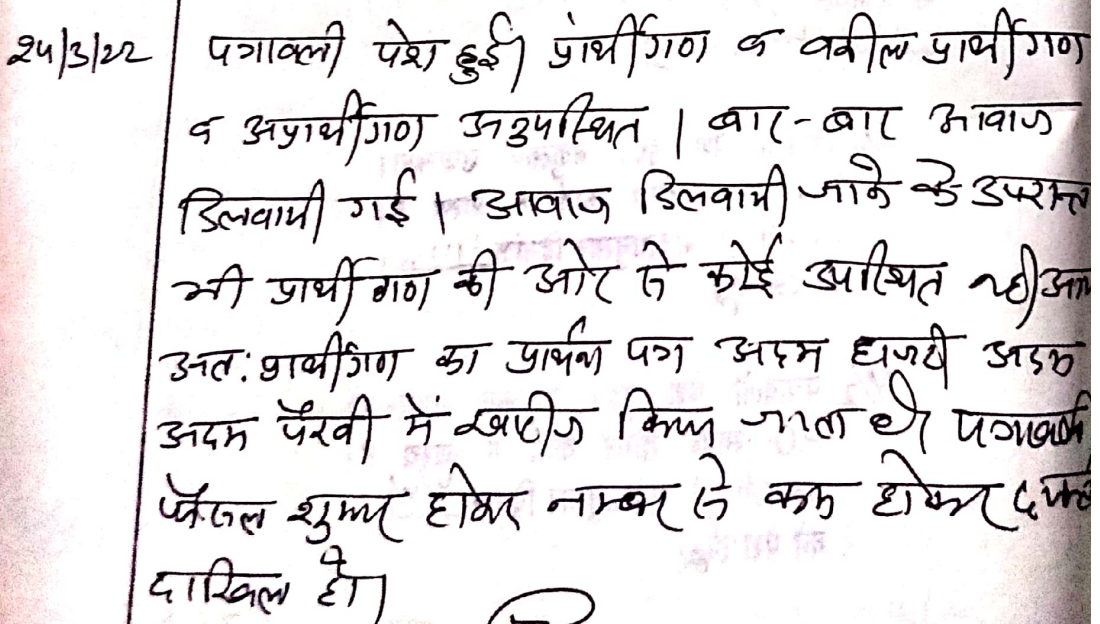 24/3/22 पत्रावली पेश हुई। प्रार्थीगण व वकील प्रार्थीगण
व अप्रार्थीगण अनुपस्थित । बार-बार आवाज
दिलवायी गई । आवाज दिलवायी जाने के उपरान्त
भी प्रार्थीगण की ओर से कोई उपस्थित नही आया
अत: प्रार्थीगण का प्रार्थना पत्र अदम हाजरी अदम
अदम पैरवी में खारीज किया जाता है। पत्रावली
फैसल शुमार होकर नम्बर से कम होकर दफ्तर
दाखिल हो।